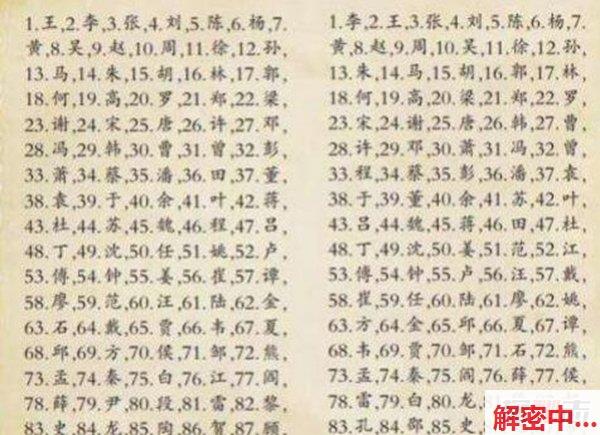 1.王,2.李,3.张,4.刘,5.陈,6.杨,7.
黄,8.吴,9.赵,10.周,11.徐,12.孙,
13.马,14.朱,15.胡,16.林,17.郭,
18.何,19.高,20.罗,21.郑,22.梁,
23.谢,24.宋,25.唐,26.许,27.邓,
28.冯,29.韩,30.曹,31.曾,32.彭,
33.萧,34.蔡,35.潘,36.田,37.董,
38.袁,39.于,40.余,41.叶,42.蒋,
43.杜,44.苏,45.魏,46.程,47.吕,
48.丁,49.沈,50.任,51.姚,52.卢,
53.傅,54.钟,55.姜,56.崔,57.谭,
58.廖,59.范,60.汪,61.陆,62.金,
63.石,64.戴,65.贾,66.韦,67.夏,
68.邱,69.方,70.侯,71.邹,72.熊,
73.孟,74.秦,75.白,76.江,77.阎,
78.薛,79.尹,80.段,81.雷,82.黎,
83.史,84.龙,85.陶,86.贺,87.顾,
1.李,2.王,3.张,4.刘,5.陈,6.杨,7.
黄,8.赵,9.周,10.吴,11.徐,12.孙,
13.马,14.朱,15.胡,16.郭,17.林,
18.何,19.高,20.梁,21.郑,22.罗,
23.宋,24.谢,25.唐,26.韩,27.曹,
28.许,29.邓,30.萧,31.冯,32.曾,
33.程,34.蔡,35.彭,36.潘,37.袁,
38.于,39.董,40.余,41.苏,42.叶,
43.吕,44.魏,45.蒋,46.田,47.杜,
48.丁,49.沈,50.姜,51.范,52.江,
53.傅,54.钟,55.卢,56.汪,57.戴,
58.崔,59.任,60.陆,61.廖,62.姚,
63.方,64.金,65.邱,66.夏,67.谭,
68.韦,69.贾,70.邹,71.石,72.熊,
73.孟,74.秦,75.阎,76.薛,77.侯,
78.雷,79.白,80.龙,
83.孔,84.邵,85.史,
解密中...